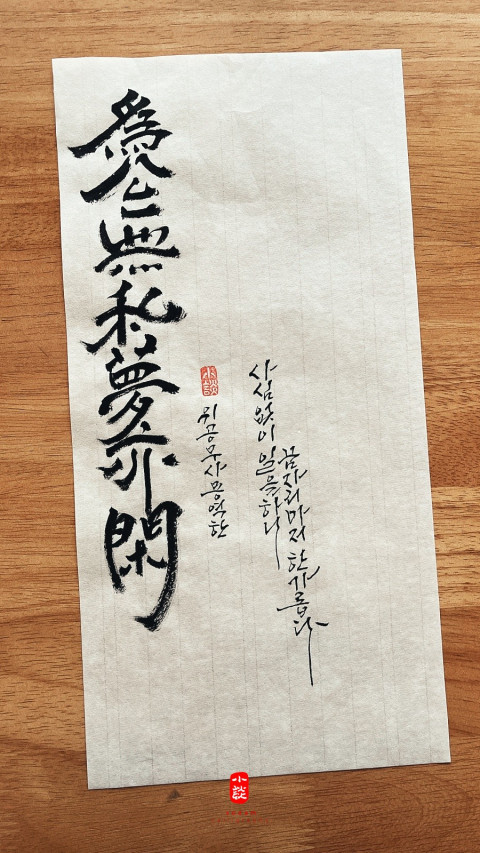 爲公無私夢亦閑
小談
위공무사몽역한
사심없이 일을하니
꿈자리마저 한가롭다
小談